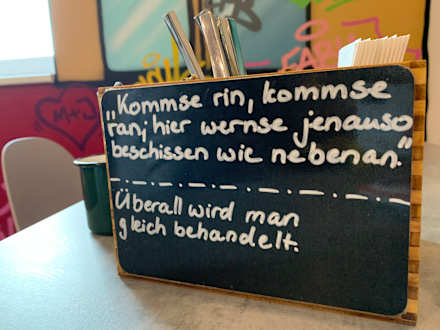 „Kommse rin, kommse
ran; hier wernse jenauso
beschissen wie nebenan."
Überall wird man
gleich behandelt.
M+J